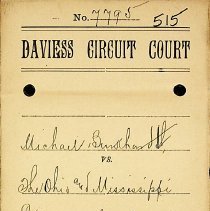 No. 7795 515
DAVIESS CIRCUIT COURT
Michael Burkhardt,
VS.
The Ohio and Mississippi